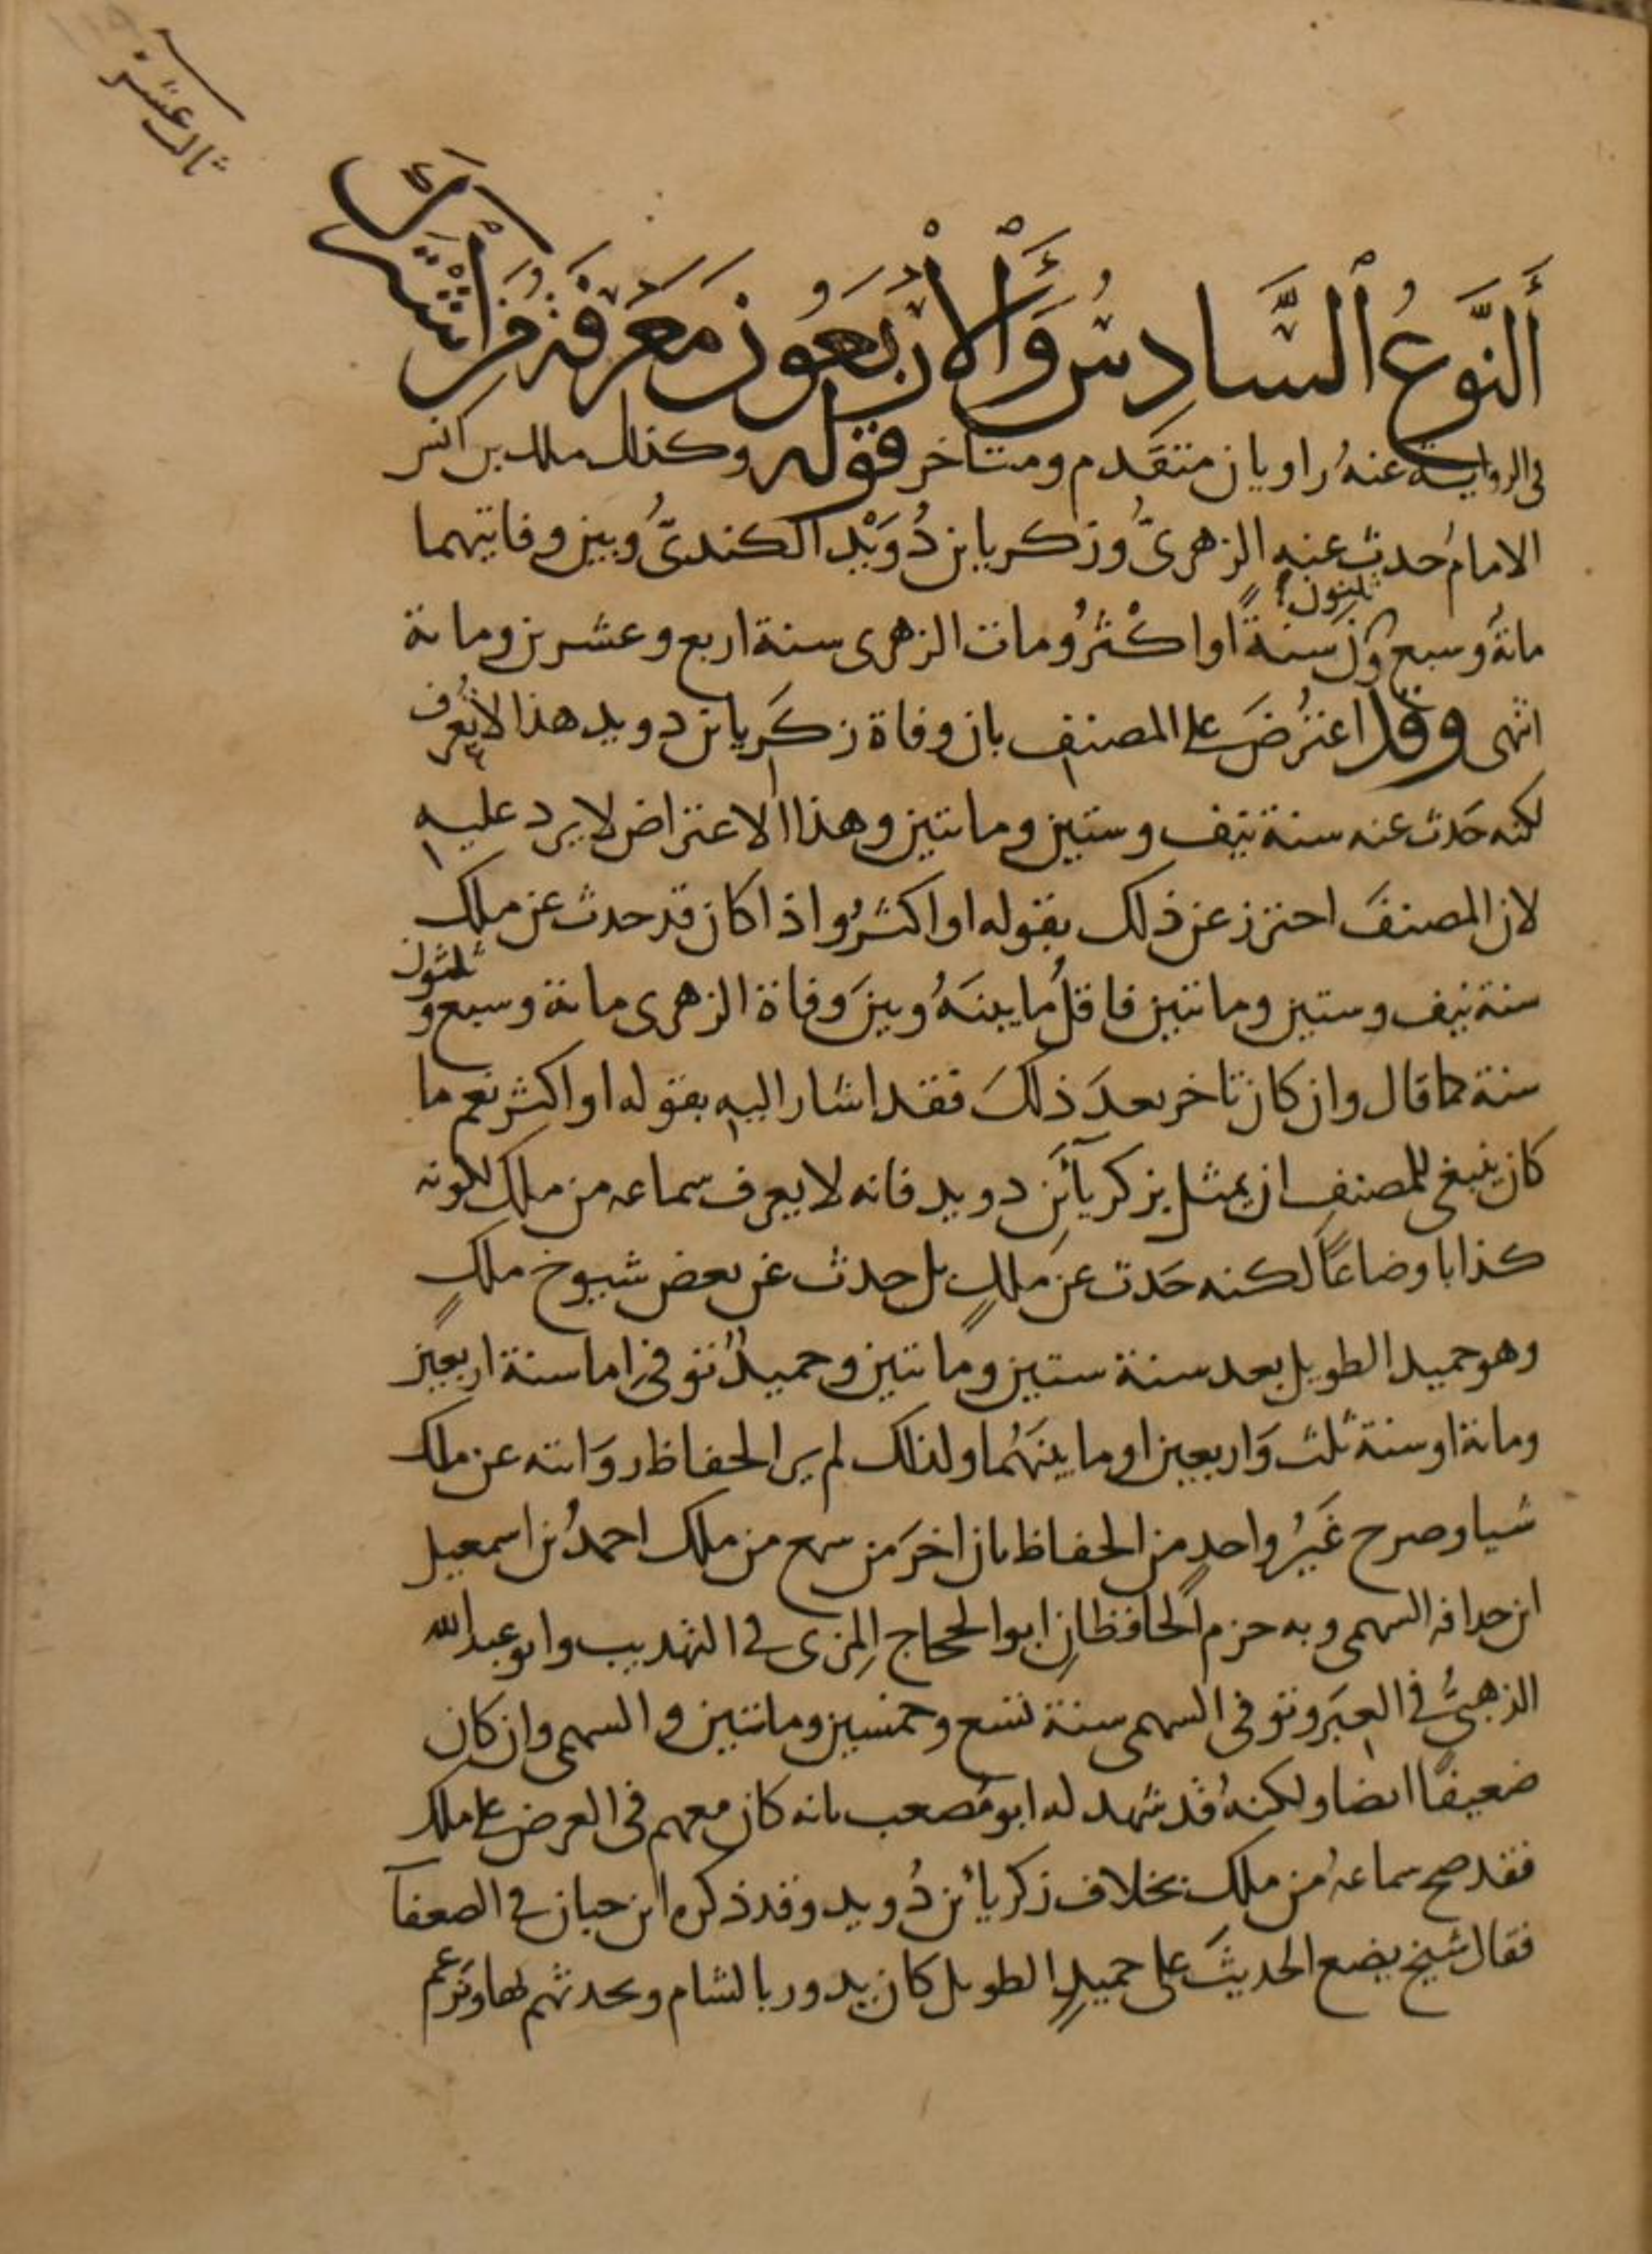 ثالث عشر
أَلنَّوعُ السَّادِسُ وَالْأَرْبَعُونَ مَعْرِفَةُ مَنِ اشْتَرَكَ
في الرواية عنهُ راويان متقَدم ومتاخر قوله وكذلك ملك بن انس
الامامُ حدث عنه الزهرىُّ وزكريا بن دُوَيْد الكندىُّ وبين وفاتيهما
مائةُ وسبع وثلثون سنةً او اكْثرُ ومات الزهرى سنة اربع وعشرين ومائة
انتهى وقد اعتُرضَ على المصنف بان وفاة زكَريا بن دويد هذا لا يُعرف
لكنه حَدث عنه سنة نيف وستين ومائتين وهذا الاعتراض لا يرد عليه
لان المصنفَ احترز عن ذلك بقوله او اكثرُ واذا كان قد حدث عن ملك
سنة نيف وستين ومائتين فاقلُ ما بينَهُ وبينَ وفاة الزهرى مائة وسبع و ثلثون
سنة كما قال وان كان تاخر بعدَ ذلكَ فقد اشار اليه بقوله او اكثر نعم ما
كان ينبغى للمصنف ان يمثل بزكريآ بنِ دويد فانه لا يعرف سماعه من ملك لكونه
كذابا وضاعًا لكنه حَدث عن مَلكٍ بل حدث عن بعض شيوخ ملكٍ
وهو حميد الطويل بعد سنة ستين ومائتين وحميدٌ توفى اما سنة اربعين
ومائة او سنة ثلث وَاربعين او ما بينَهُما ولذلك لم ير الحفاظ روَايته عن ملك
شيا وصرح غَيرُ واحدٍ من الحفاظ بان اخرَ من سمع من ملك احمدُ بن اسمعيل
ابن حذافه السهمى وبه جزم الحافظانِ ابو الحجاج المِزى في التهذيب وابو عبد الله
الذهبىُّ في العِبَر وتوفى السهمى سنة تسع وخمسين ومائتين والسهمى وان كان
ضعيفًا ايضا ولكنهُ قد شهد له ابو مُصعب بانه كان معهم في العرض على ملك
فقد صح سماعهُ من ملك بخلاف زكريا بن دُويد وقد ذكره ابن حبان في الضعفآ
فقال شيخ يضع الحديثَ على حميدٍ الطويل كان يدور بالشام ويحدثهم بها ويَزعم